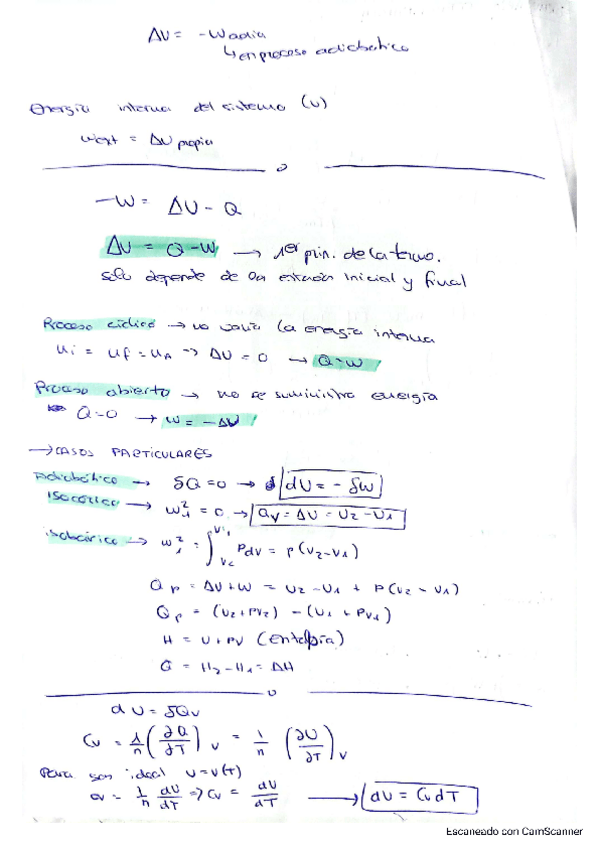 ΔU = -Wadia
↳ en proceso adiabático
Energía interna del sistema (U)
Wext = ΔU propia
-W = ΔU - Q
ΔU = Q - W → 1er prin. de la termo.
solo depende de la estación inicial y final
Proceso cíclico → no varia la energía interna
Ui = Uf = UA => ΔU = 0 → Q = W
Proceso abierto → no se suministra energía
Q=0 → W = -ΔU
→ CASOS PARTICULARES
Adiabático → δQ = 0 → dU = - δW
Isocórico → W₁² = 0 → Qv = ΔU = U2 - U1
isobárico → W₁² = ∫ Pdv = p(V2 - V1)
Qp = ΔU + W = U2 - U1 + P(V2 - V1)
Qp = (U2 + PV2) - (U1 + PV1)
H = U + PV (Entalpía)
Q = H2 - H1 = ΔH
dU = δQv
Cv = 1/n (∂Q/∂T)v = 1/n (∂U/∂T)v
Para gas ideal U = U(T)
Cv = 1/n dU/dT => Cv = dU/dT → dU = Cv dT
Escaneado con CamScanner